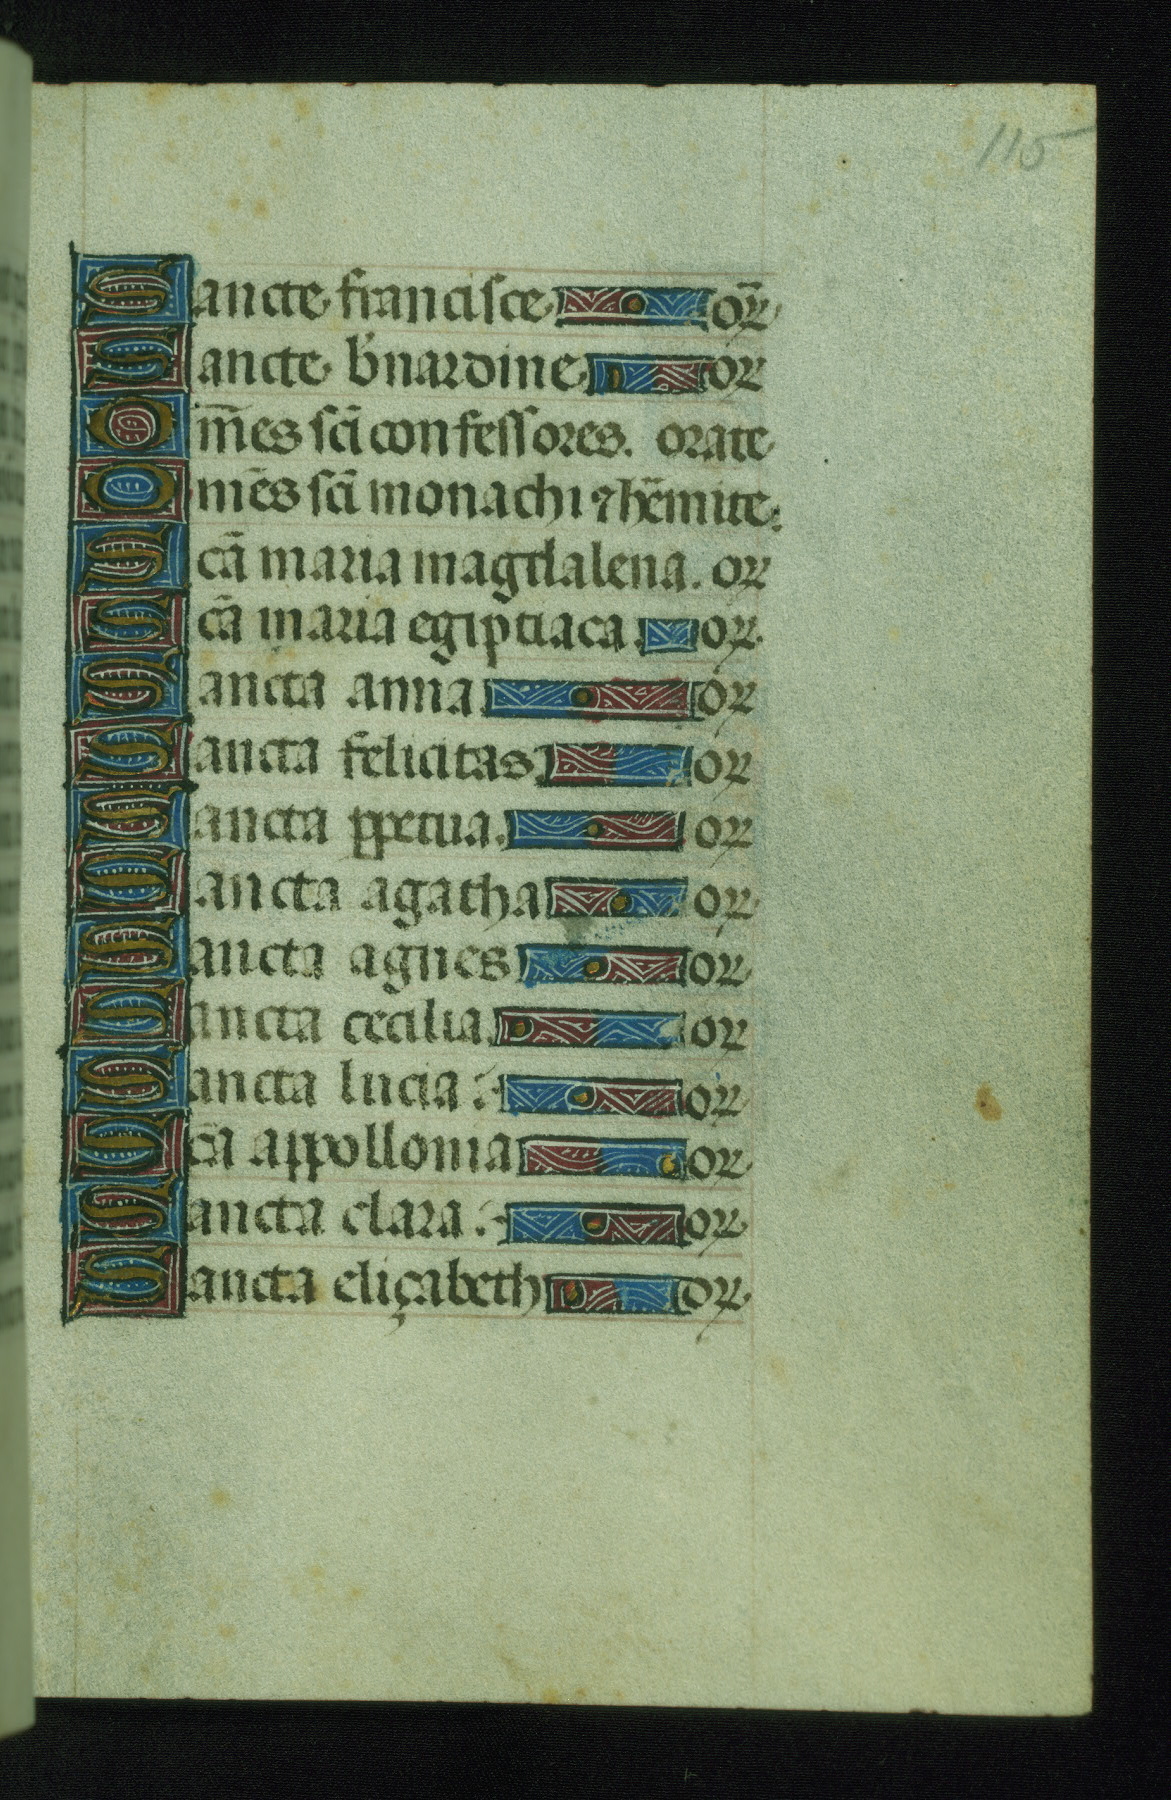 115
Sancte francisce or̄
Sancte b̄nardine or
Om̄es sc̄i confessores. orate
Omēs sc̄i monachi ⁊ hēmite.
Scā maria magdalena. or
Scā maria egiptiaca. or
Sancta anna or
Sancta felicitas or
Sancta ꝑpetua. or
Sancta agatha or
Sancta agnes or
Sancta cecilia. or
Sancta lucia or
Scā appollonia or
Sancta clara or
Sancta eliçabeth or